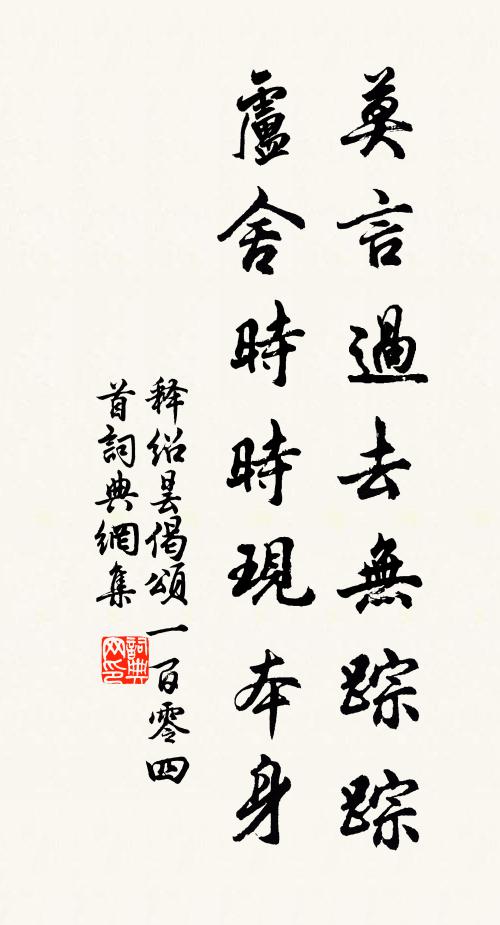 莫言過去無踪踪
盧舍時時現本身
释紹昙偈頌一百零四
首詞典網集
詞典
网印